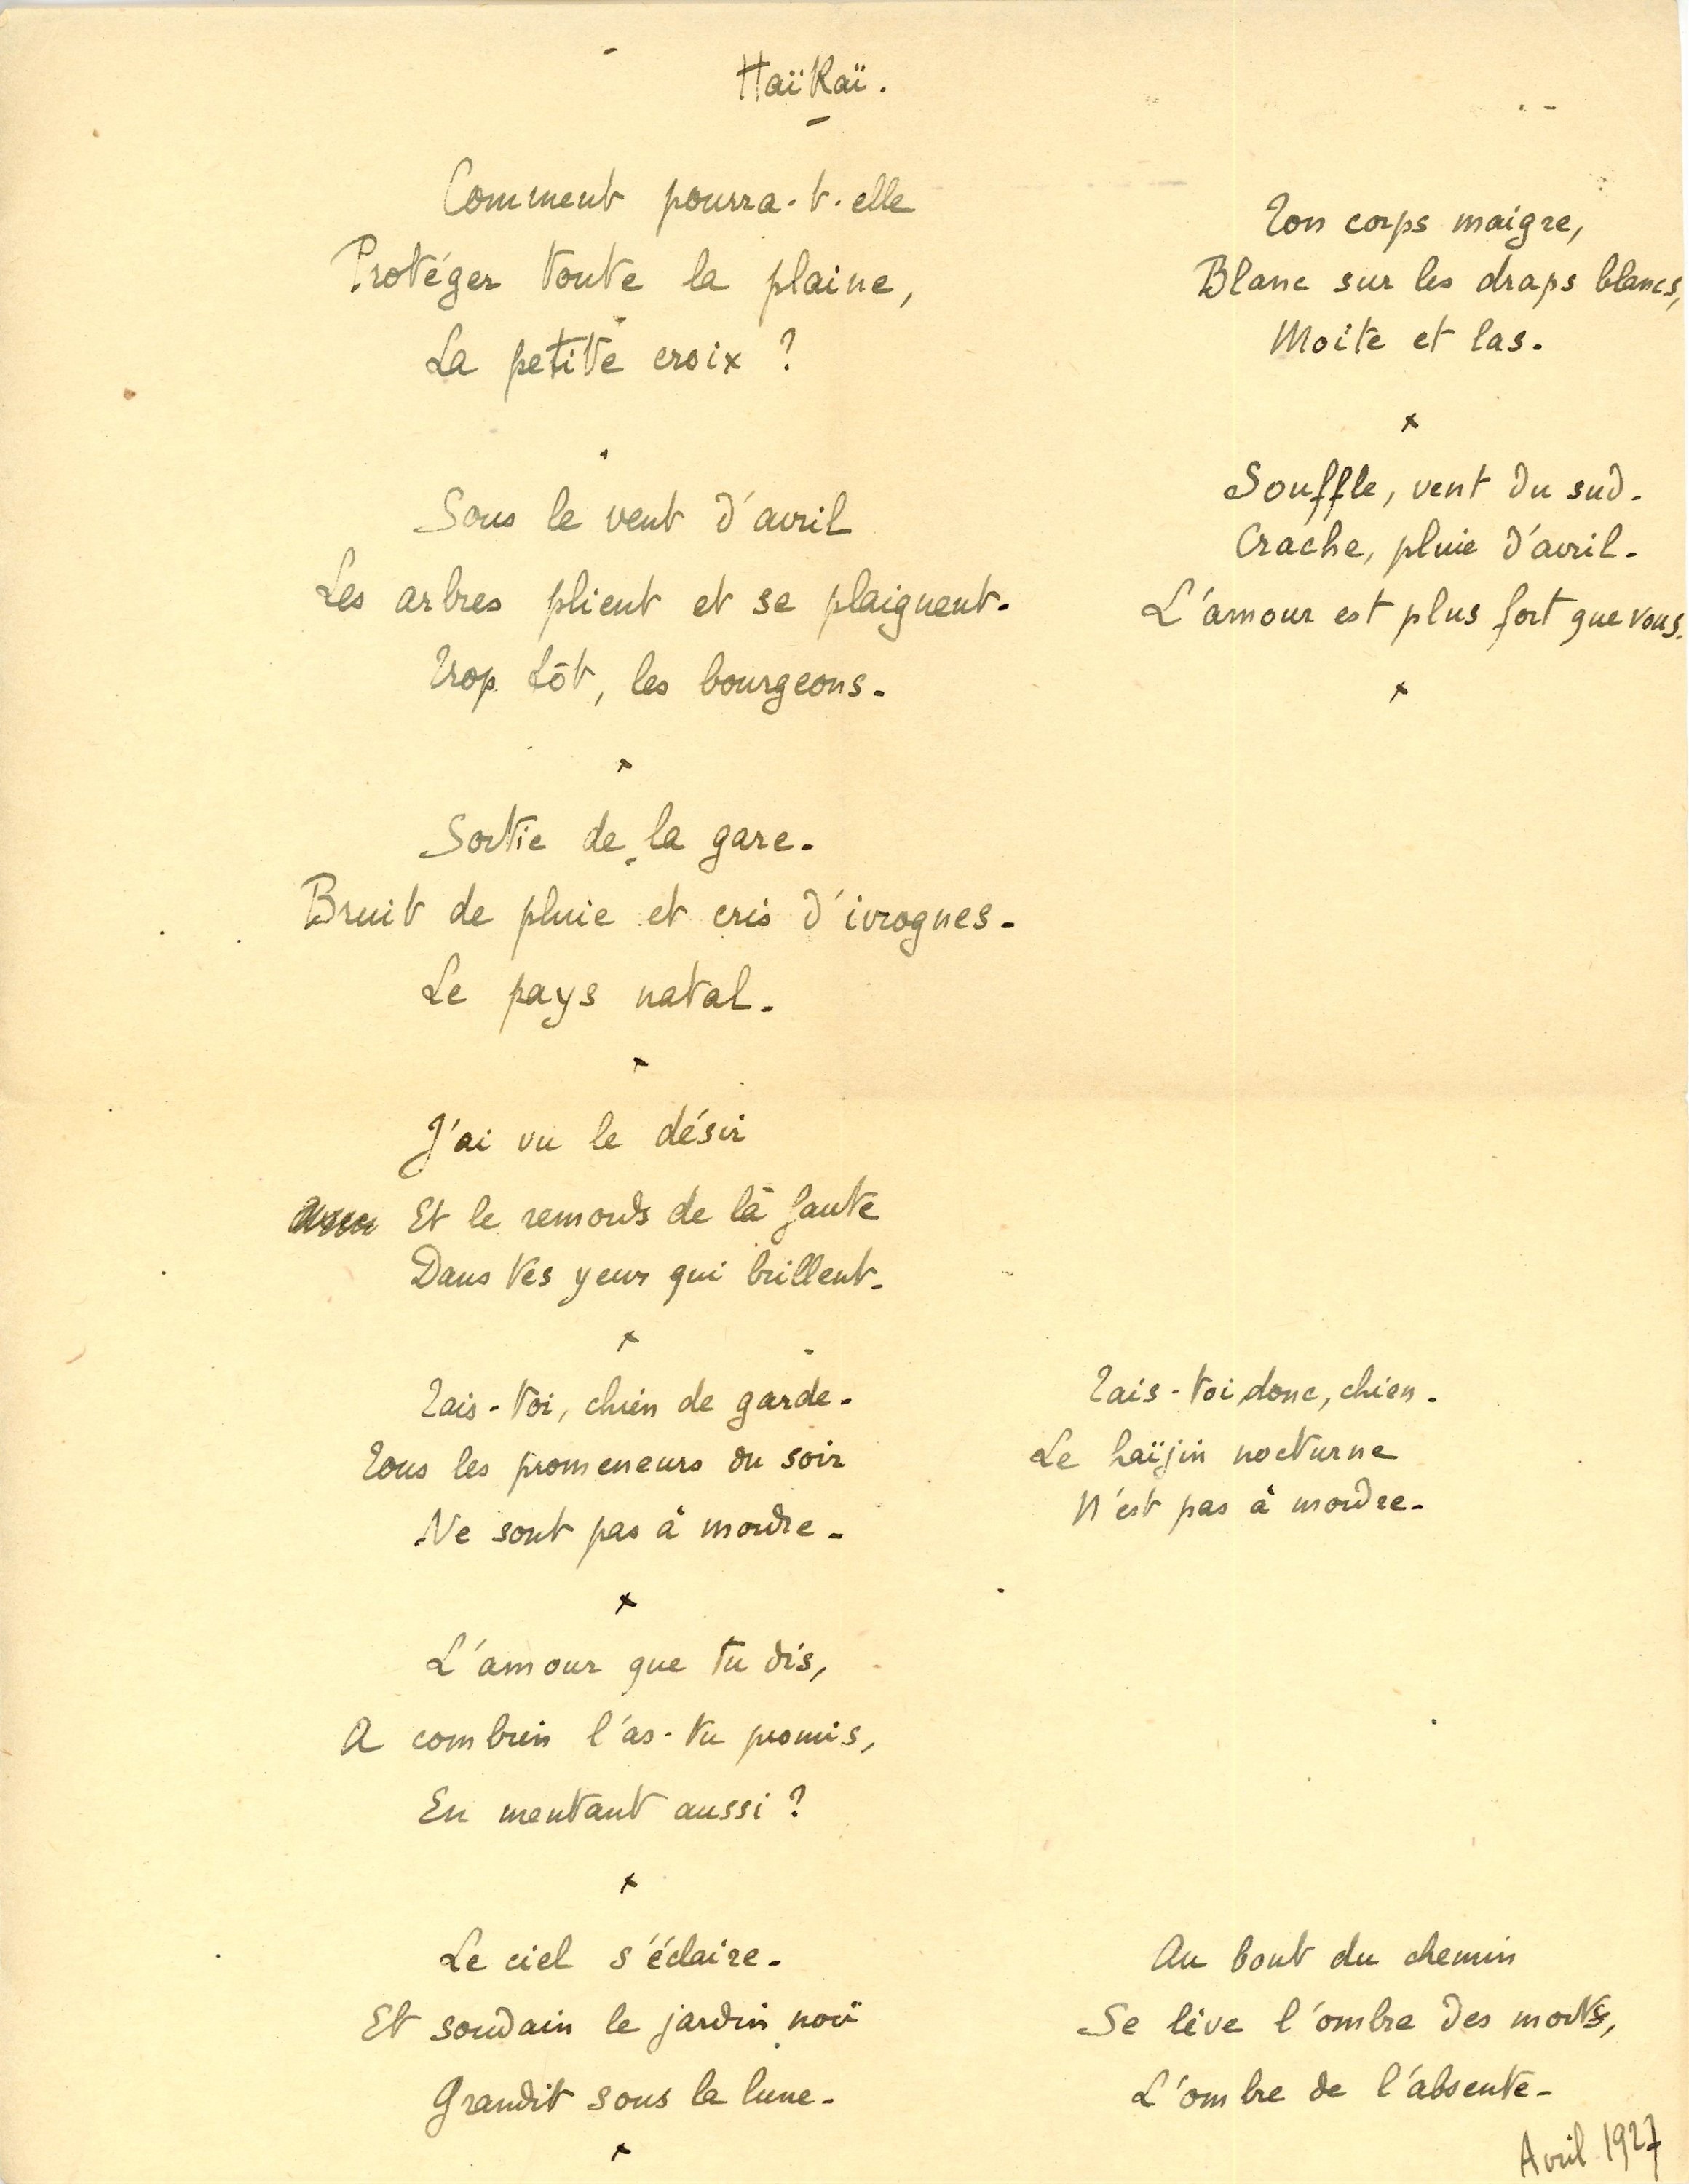 Haïkaï.
Comment pourra-t-elle
Protéger toute la plaine,
La petite croix ?
Sous le vent d'avril
Les arbres plient et se plaignent.
Trop tôt, les bourgeons.
x
Sortie de la gare.
Bruit de pluie et cris d'ivrognes.
Le pays natal.
x
J'ai vu le désir
Et le remords de la faute
Dans tes yeux qui brillent.
x
Tais-toi, chien de garde.
Tous les promeneurs du soir
Ne sont pas à mordre.
x
L'amour que tu dis,
A combien l'as-tu promis,
En mentant aussi ?
x
Le ciel s'éclaire.
Et soudain le jardin noir
Grandit sous la lune.
x
Ton corps maigre,
Blanc sur les draps blancs,
Moite et las.
x
Souffle, vent du sud.
Crache, pluie d'avril.
L'amour est plus fort que vous.
x
Tais-toi donc, chien.
Le haïjin nocturne
N'est pas à mordre.
Au bout du chemin
Se lève l'ombre des morts,
L'ombre de l'absente.
Avril 1927